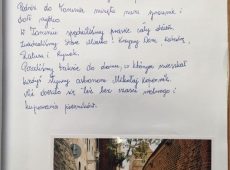 Podróż do Torunia minęła nam sprawnie i
dość szybko.
W Toruniu spędziliśmy prawie cały dzień.
Zwiedziliśmy Stare Miasto! Krzywy Dom, Katedrę,
Ratusz i Rynek.
Poszliśmy także do domu, w którym mieszkał
kiedyś słynny astronom Mikołaj Kopernik.
Nie obeszło się też bez czasu wolnego i
kupowania pierników.